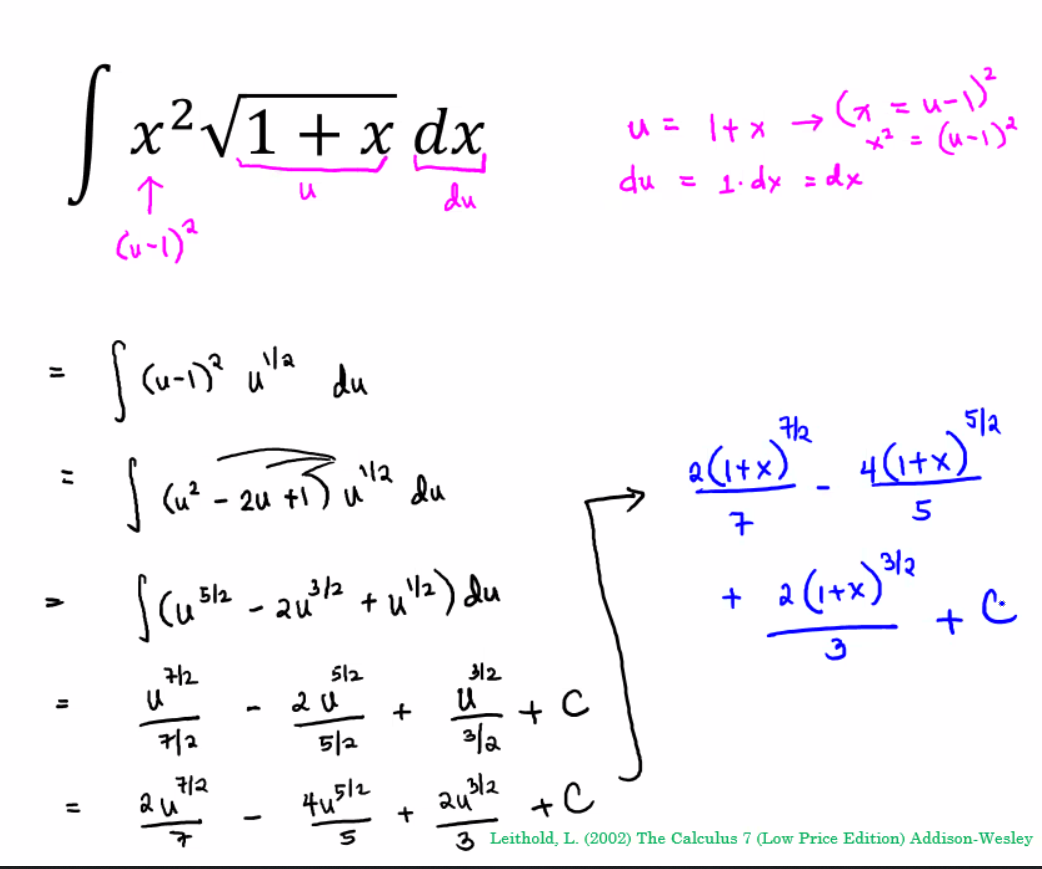 ∫ x²√(1 + x) dx
u = 1+x → (x = u-1)²
x² = (u-1)²
du = 1·dx = dx
↑ u du
(u-1)²
= ∫ (u-1)² u^(1/2) du
= ∫ (u² - 2u +1) u^(1/2) du
= ∫ (u^(5/2) - 2u^(3/2) + u^(1/2)) du
= u^(7/2)/(7/2) - 2u^(5/2)/(5/2) + u^(3/2)/(3/2) + C
= 2u^(7/2)/7 - 4u^(5/2)/5 + 2u^(3/2)/3 + C
→ 2(1+x)^(7/2)/7 - 4(1+x)^(5/2)/5
+ 2(1+x)^(3/2)/3 + C
Leithold, L. (2002) The Calculus 7 (Low Price Edition) Addison-Wesley